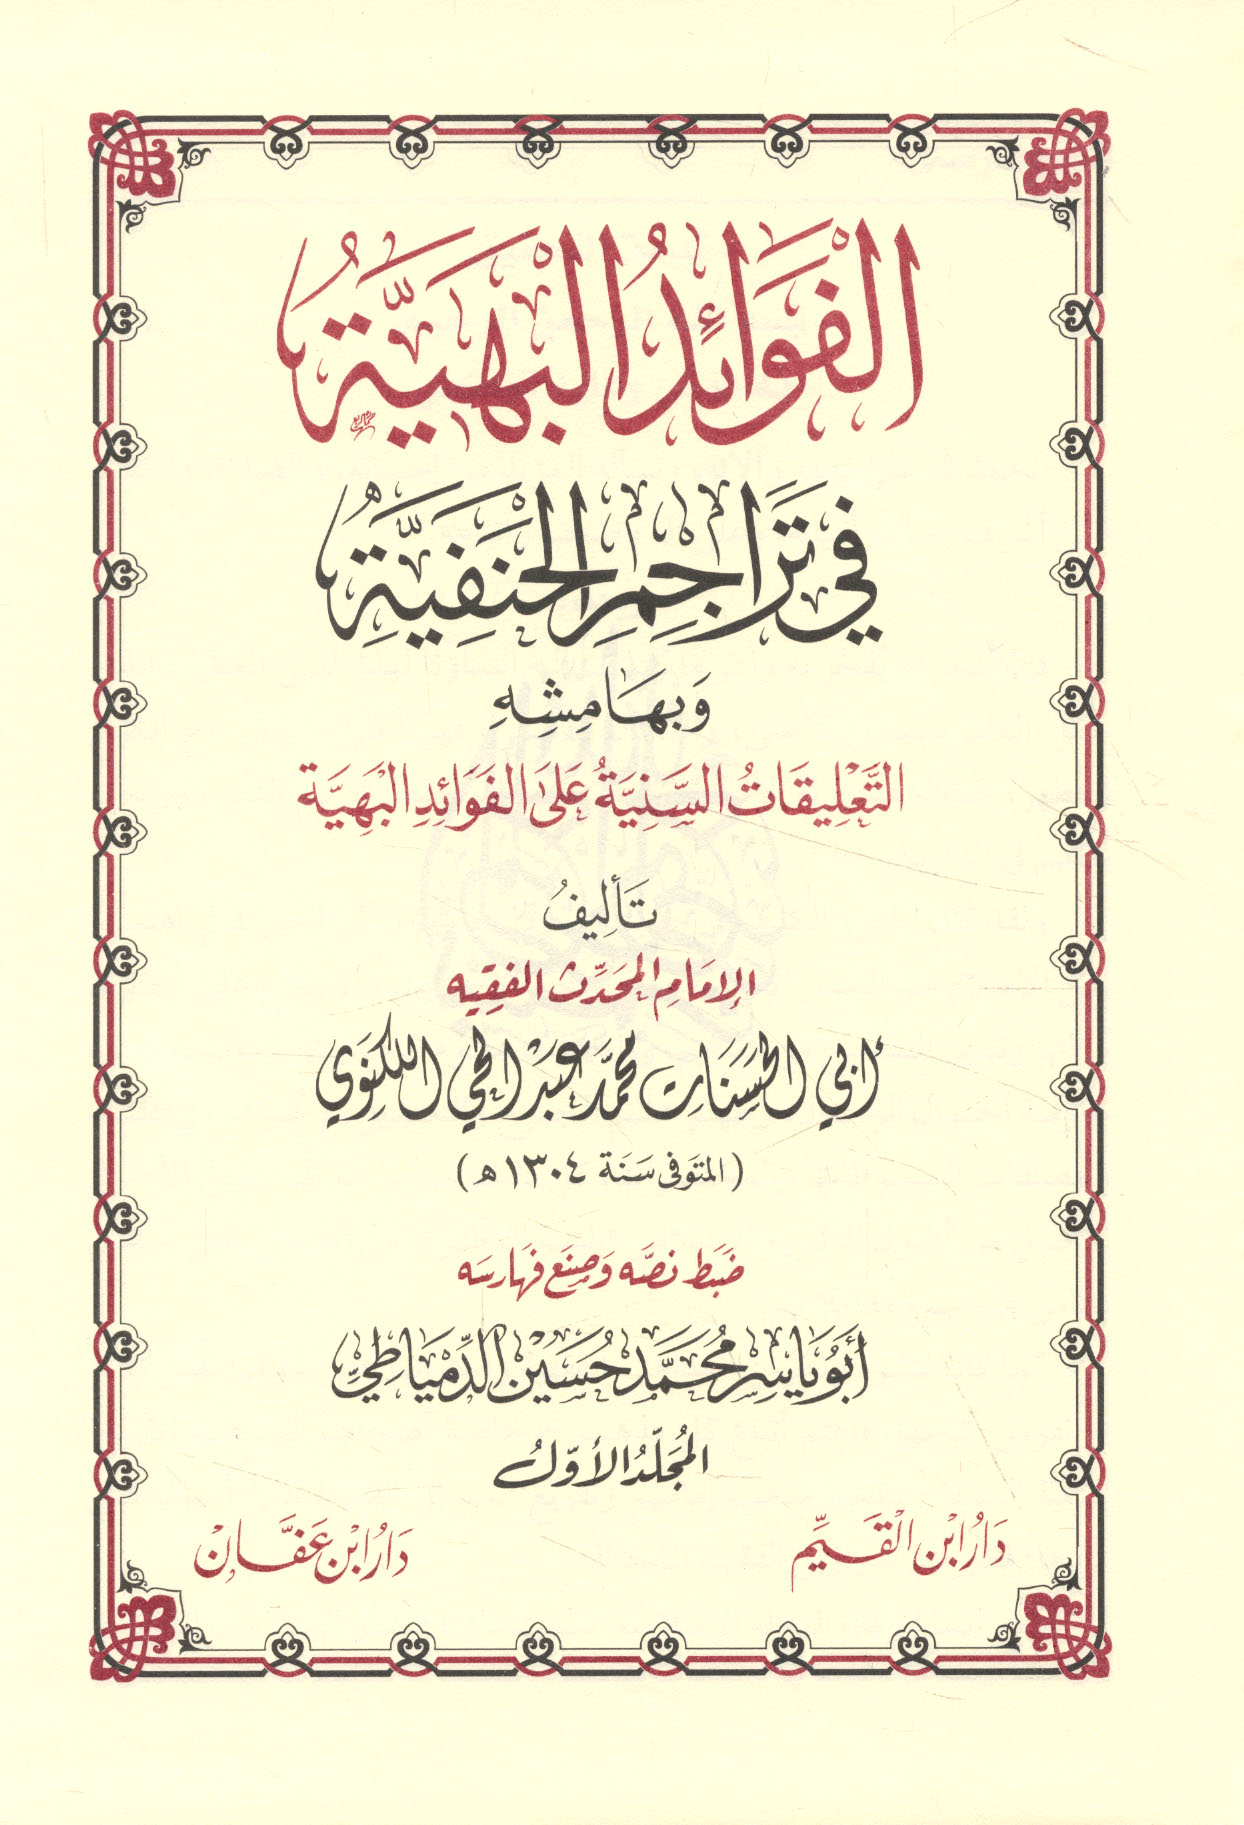 الفَوَائِدُ البَهِيَّةُ
فِي تَرَاجِمِ الحَنَفِيَّةِ
وَبِهَامِشِهِ
التَّعْلِيقَاتُ السَّنِيَّةُ عَلَى الفَوَائِدِ البَهِيَّة
تَأليفُ
الإمَامِ المحَدِّث الفقِيه
أبي الحَسَنَات محمَّد عَبْد الحَيّ اللكنَوي
(المتوفى سَنَة ١٣٠٤ هـ)
ضَبَط نصَّه وَصنَع فهَارسَه
أَبُو يَاسِر مُحَمَّد حُسَيْن الدِّمْيَاطِيّ
المُجَلَّدُ الأوّلُ
دَارُ ابْن القَيِّم
دَارُ ابْن عَفَّان